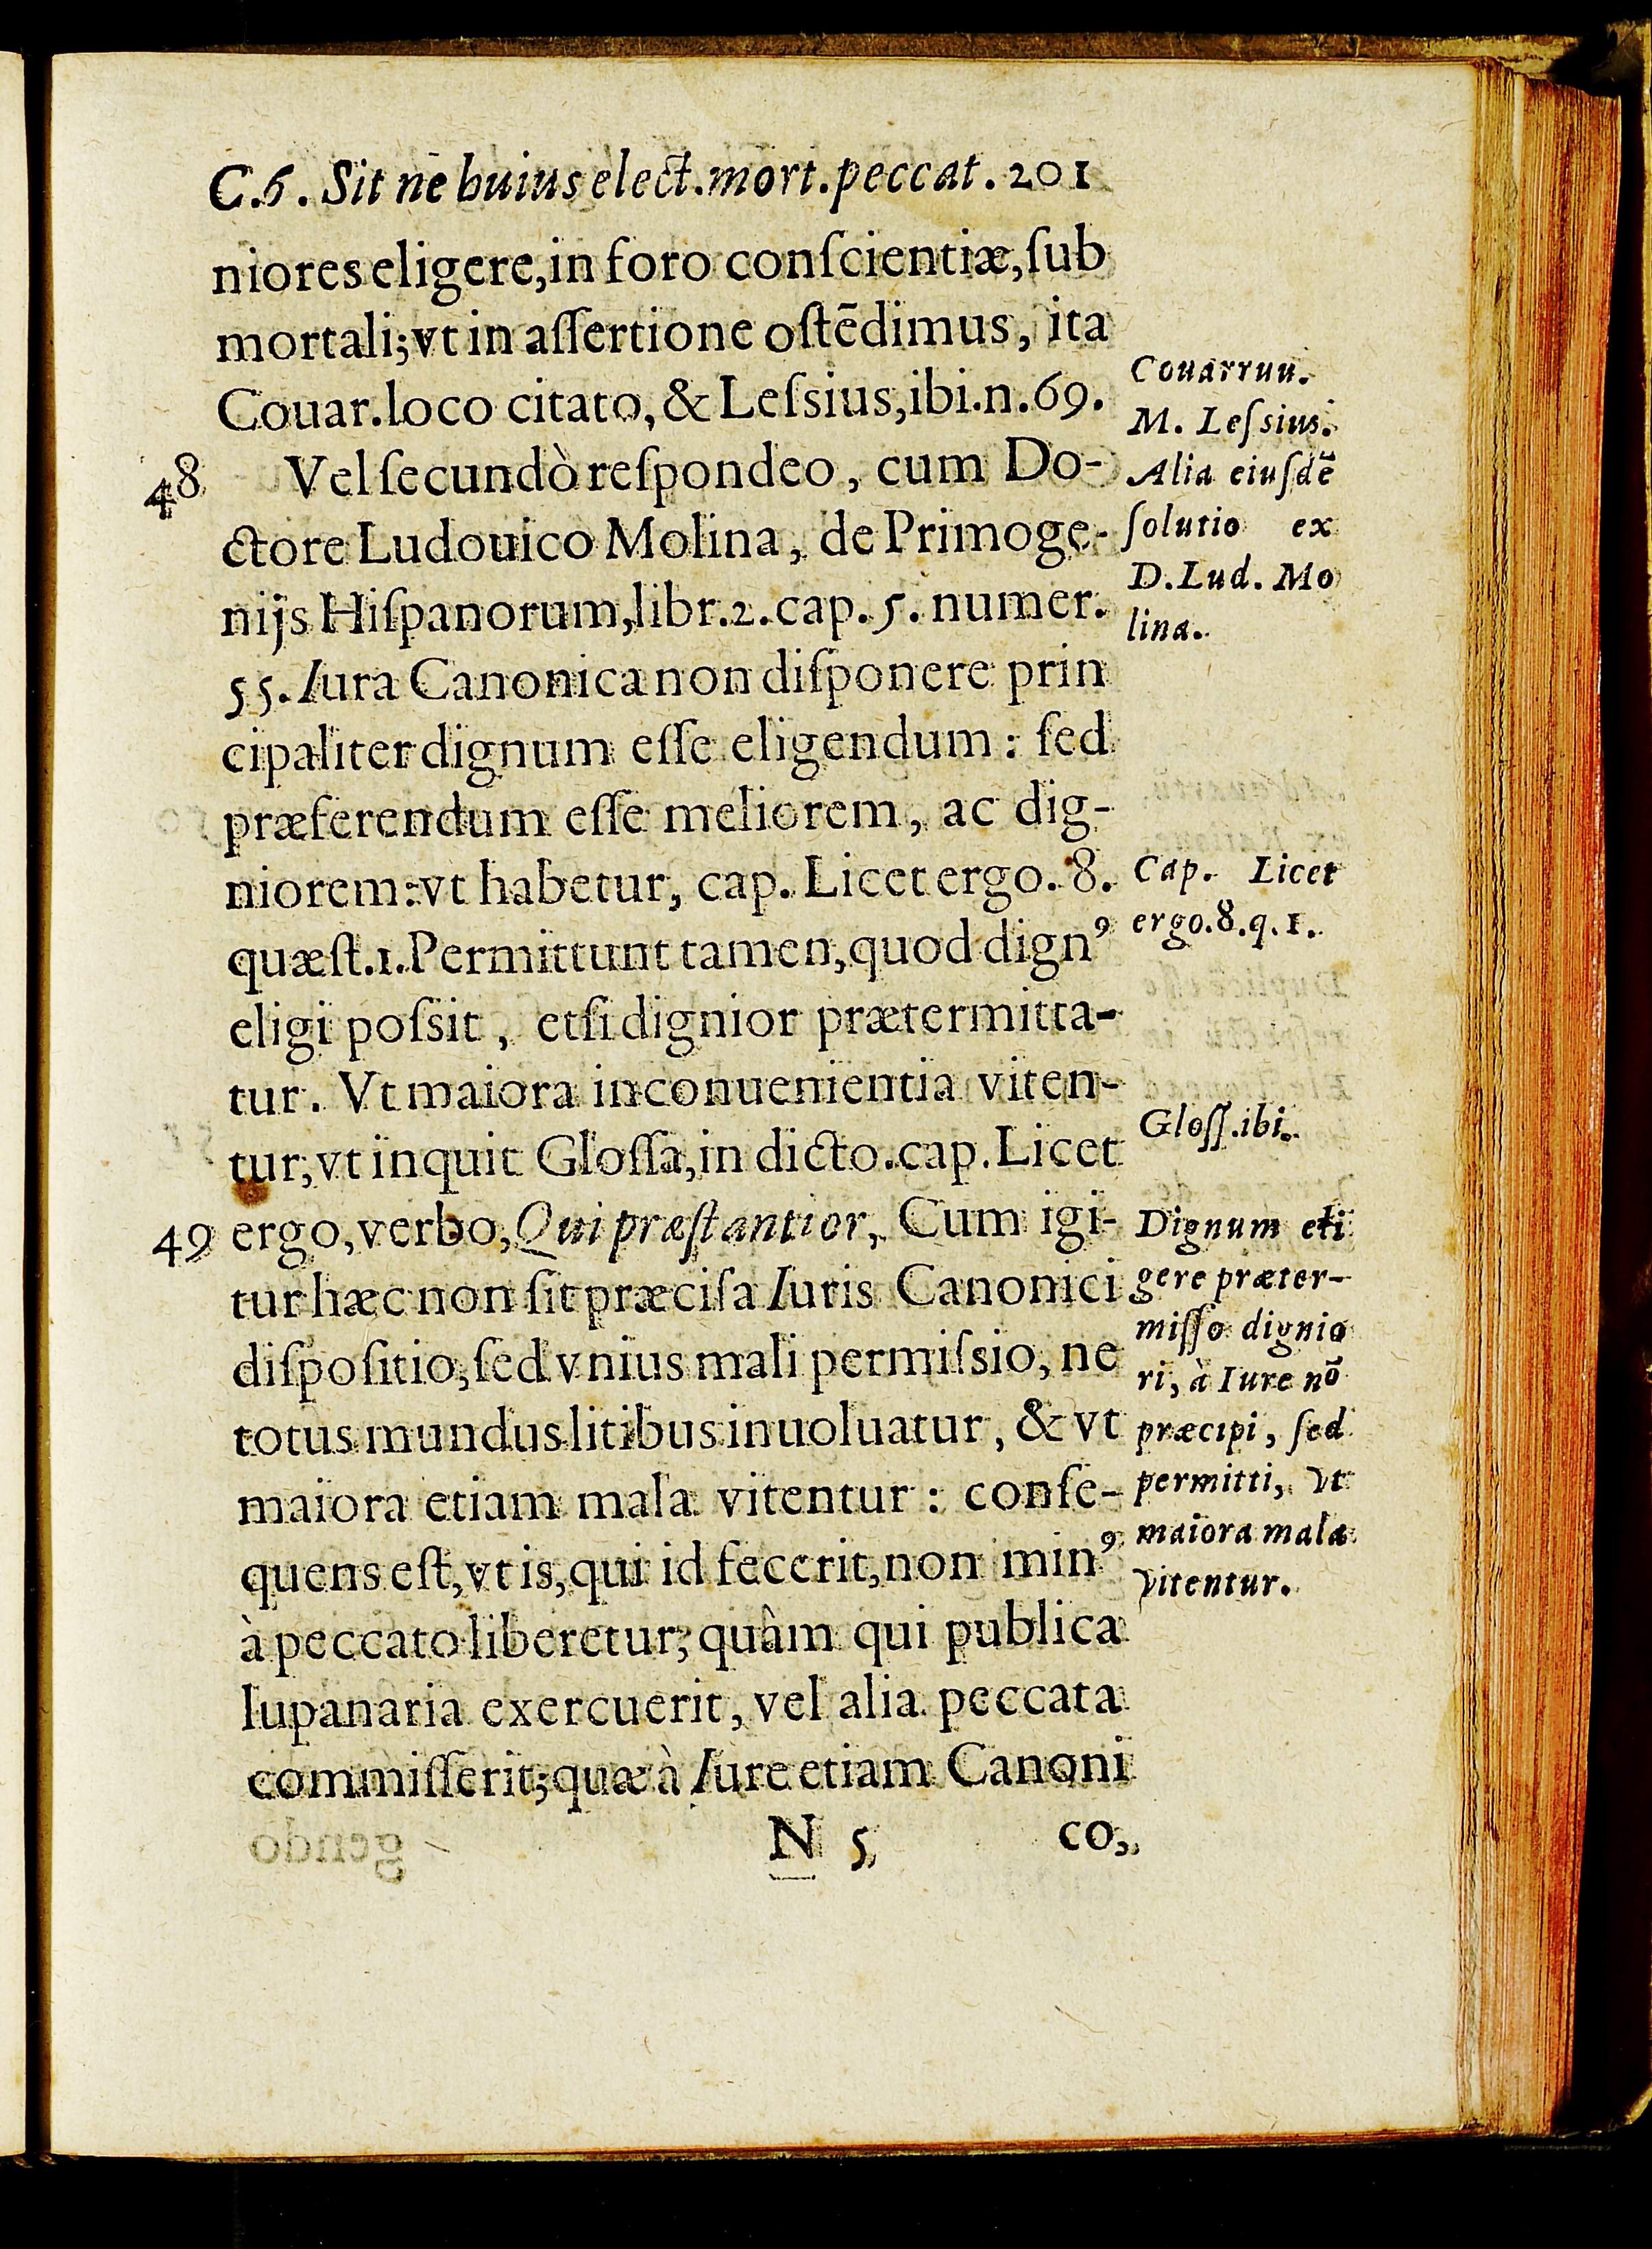 C.6. Sit nē huius elect.mort.peccat. 201
niores eligere,in foro conſcientiæ,ſub
mortali;vt in aſſertione oſtēdimus, ita
Couar.loco citato,& Leſsius,ibi.n.69.
48 Vel ſecundò reſpondeo, cum Do-
ctore Ludouico Molina, de Primoge-
nijs Hiſpanorum,libr.2.cap.5. numer.
55. Iura Canonica non diſponere prin
cipaliter dignum eſſe eligendum: ſed
præferendum eſſe meliorem, ac dig-
niorem:vt habetur, cap. Licet ergo. 8.
quæſt.1.Permittunt tamen,quod dignꝰ
eligi poſsit, etſi dignior prætermitta-
tur. Vt maiora inconuenientia viten-
tur;vt inquit Gloſſa,in dicto.cap.Licet
49 ergo,verbo,Qui præſtantior, Cum igi-
tur hæc non ſit præciſa Iuris Canonici
diſpoſitio,ſed vnius mali permiſsio, ne
totus mundus litibus inuoluatur, & vt
maiora etiam mala vitentur: conſe-
quens eſt,vt is,qui id fecerit,non minꝰ
à peccato liberetur; quàm qui publica
lupanaria exercuerit, vel alia peccata
commiſſerit;quæ à Iure etiam Canoni
N 5 co,
Couarruu.
M. Leſsius.
Alia eiuſdē
ſolutio ex
D.Lud. Mo
lina.
Cap. Licet
ergo.8.q.1.
Gloſſ.ibi.
Dignum eli
gere præter-
miſſo dignio
ri, à Iure nō
præcipi, ſed
permitti, vt
maiora mala
vitentur.